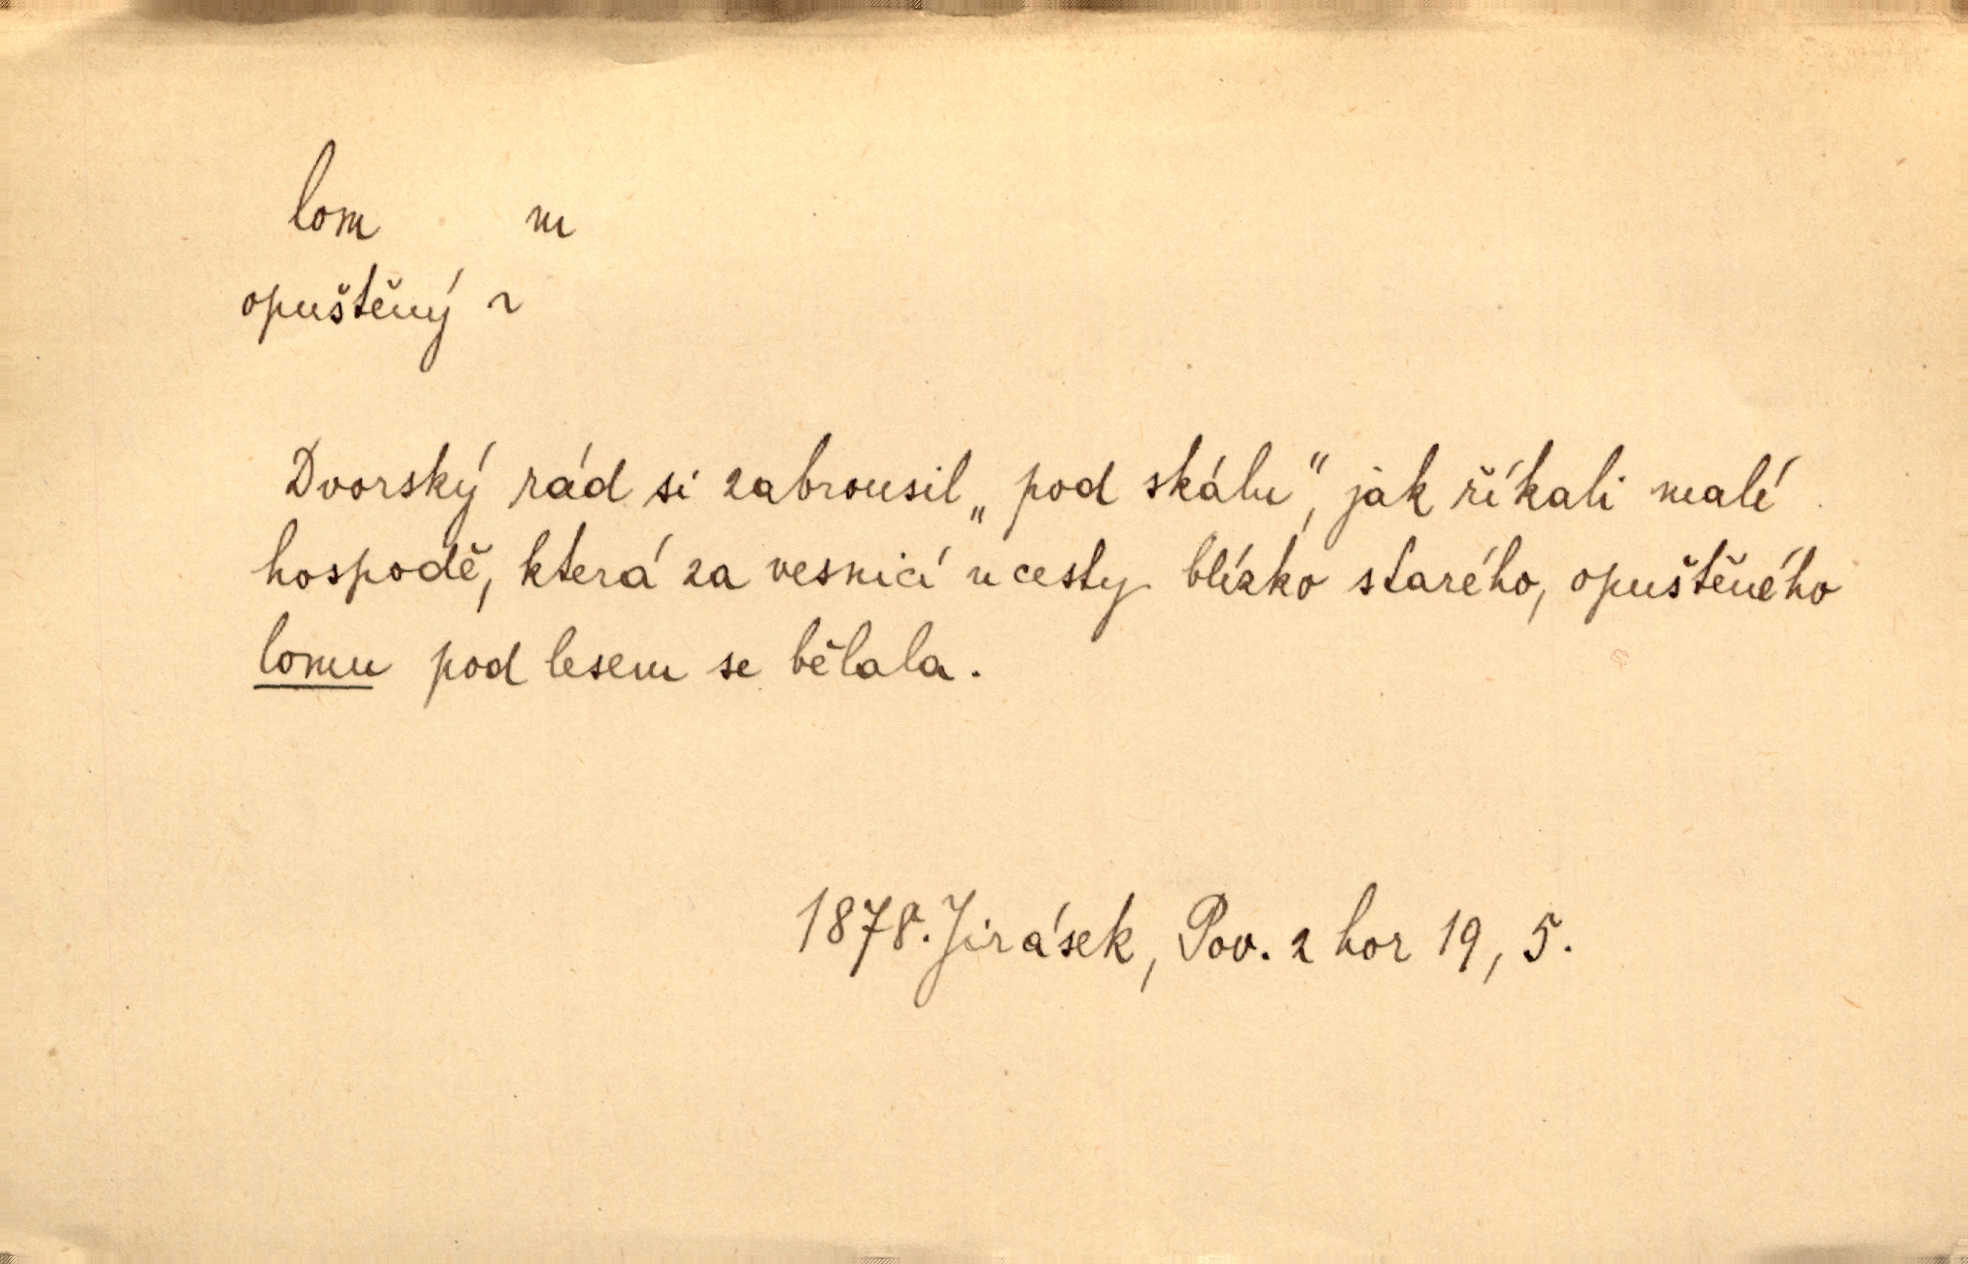 lom m
opuštěný ~
Dvorský rád si zabrousil „pod skálu“, jak říkali malé
hospodě, která za vesnicí u cesty blízko starého, opuštěného
lomu pod lesem se bělala.
1878. Jirásek, Pov. z hor 19, 5.